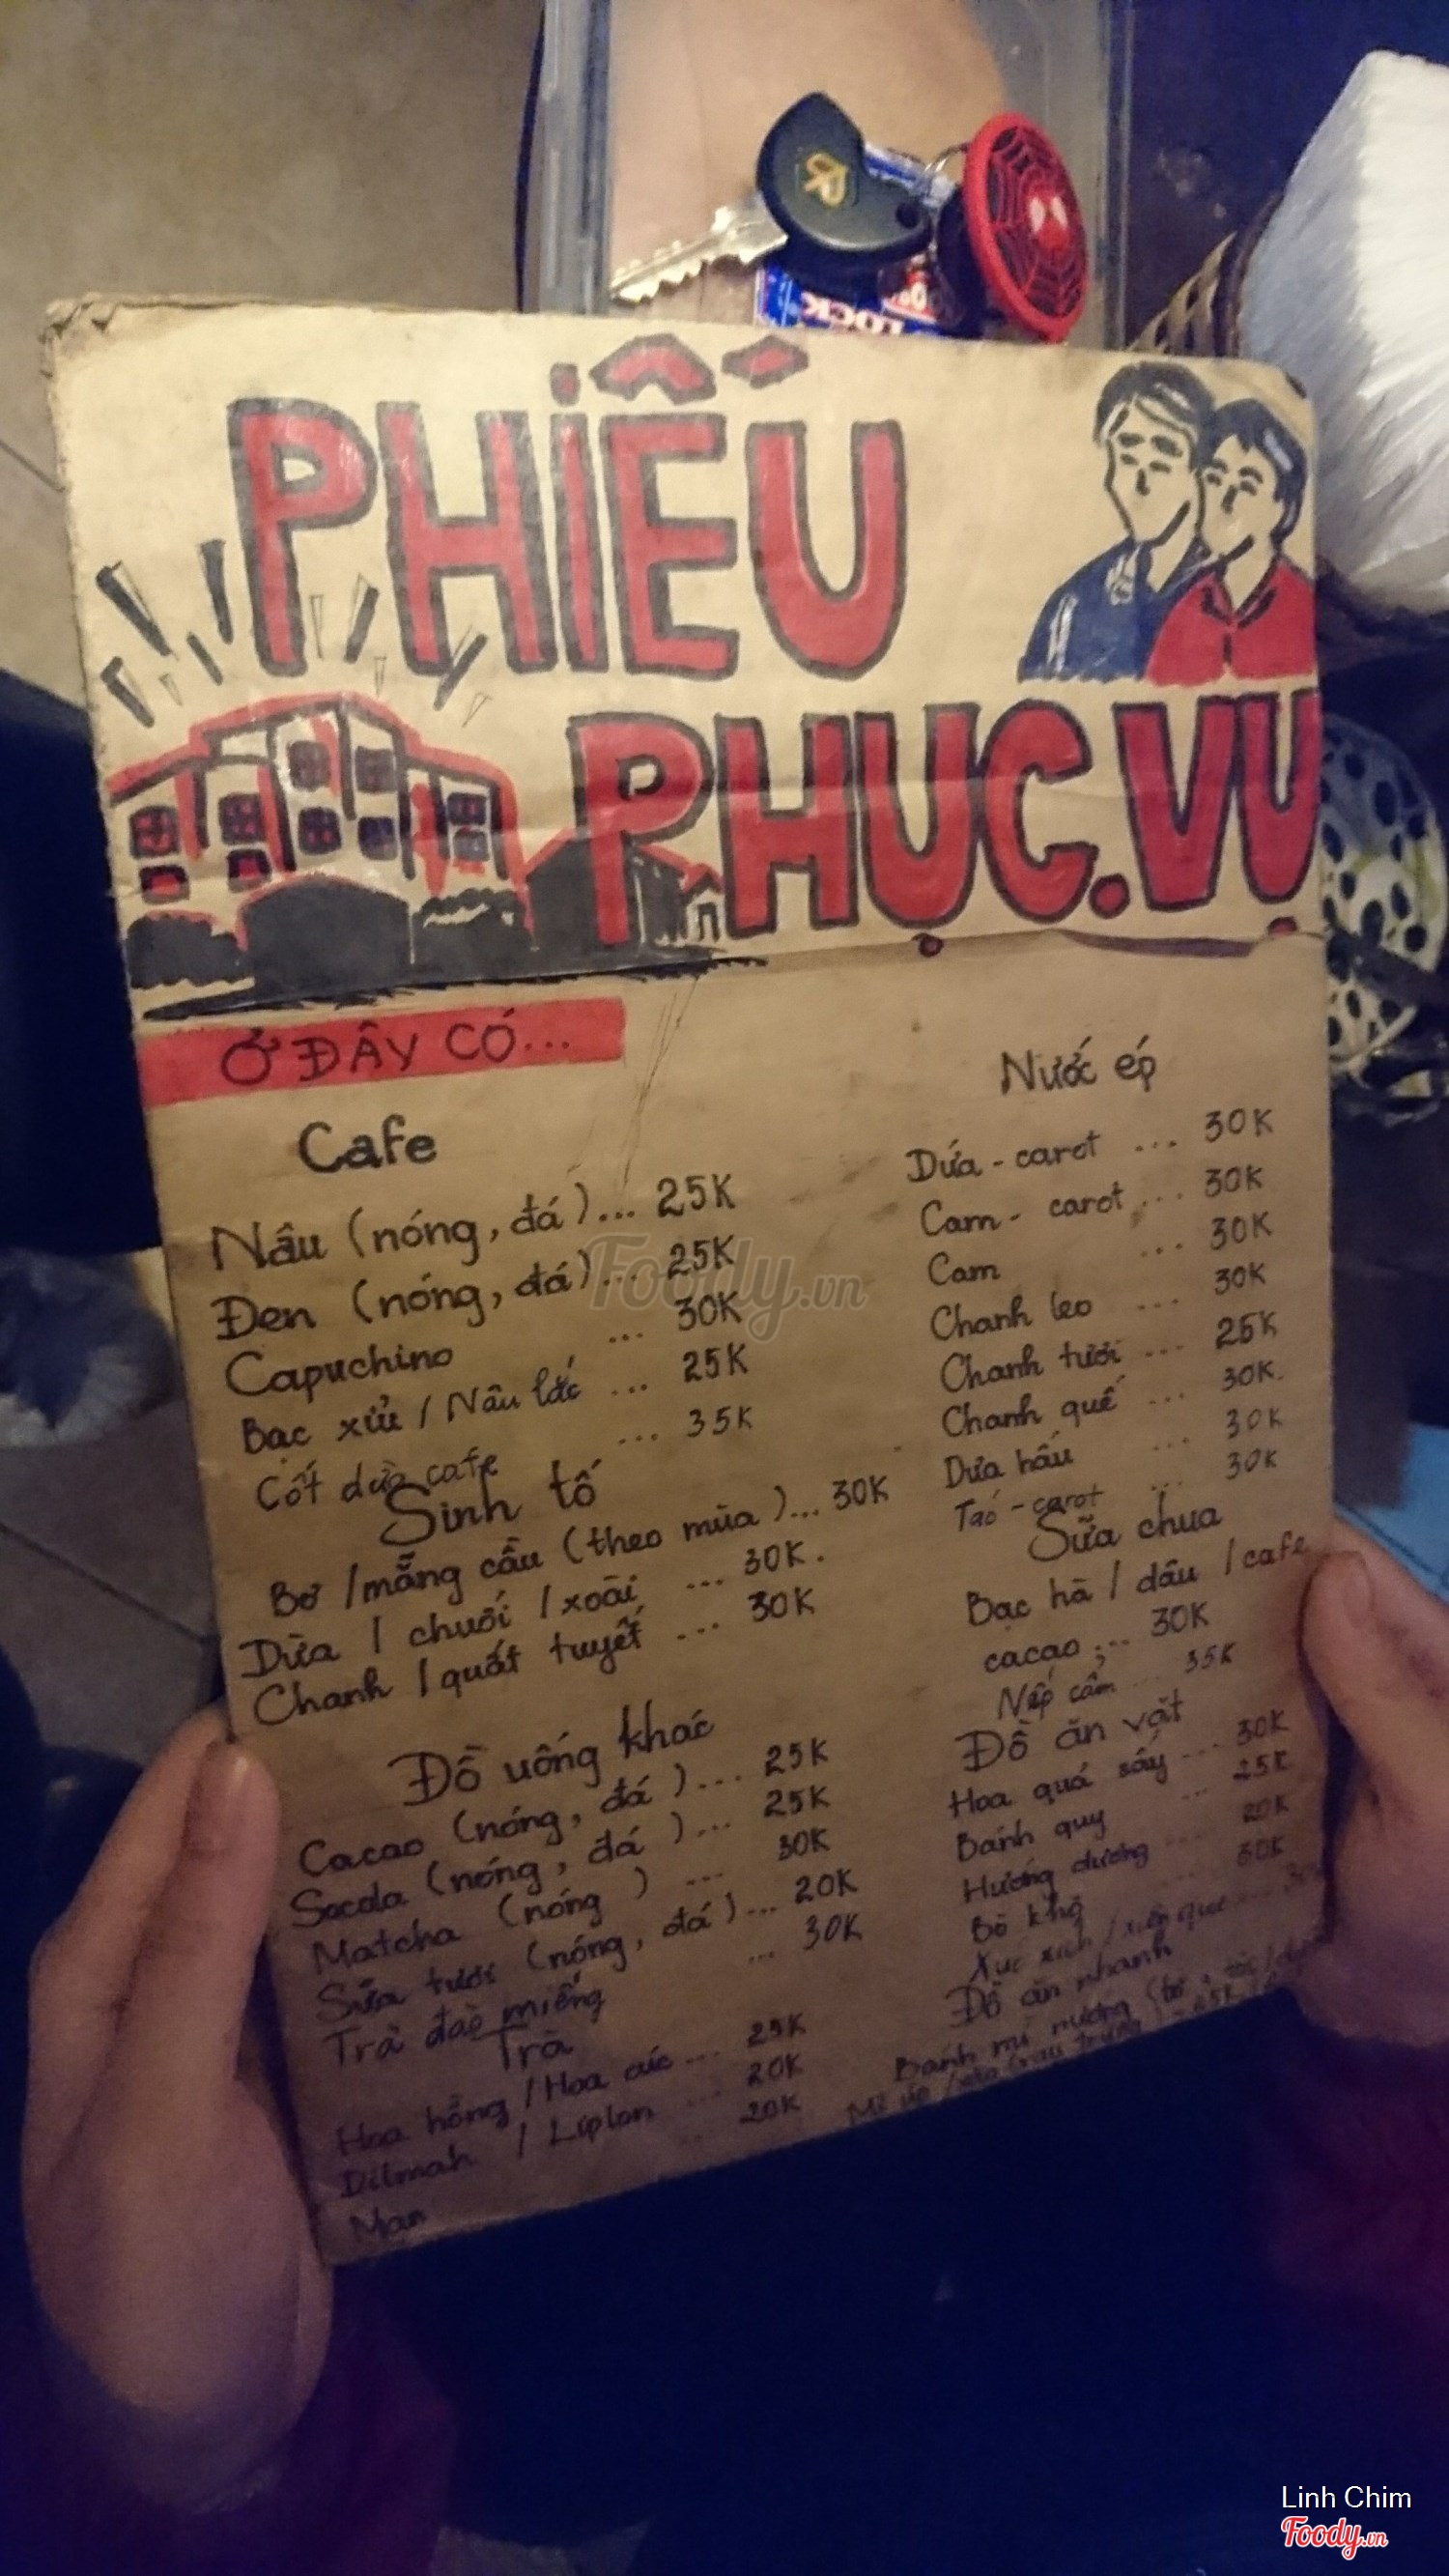 LOCK
PHIẾU
PHỤC.VỤ
Ở ĐÂY CÓ...
Cafe
Nâu (nóng, đá)... 25K
Đen (nóng, đá)... 25K
Capuchino ... 30K
Bạc xỉu / Nâu lắc ... 25K
Cốt dừa cafe ... 35K
Sinh tố
Bơ / mãng cầu (theo mùa)... 30K
Dừa / chuối / xoài ... 30K.
Chanh / quất tuyết ... 30K
Đồ uống khác
Cacao (nóng, đá)... 25K
Socola (nóng, đá)... 25K
Matcha (nóng) ... 30K
Sữa tươi (nóng, đá)... 20K
Trà đào miếng ... 30K
Trà
Hoa hồng / Hoa cúc ... 25K
Dilmah / Lipton ... 20K
20K
Nước ép
Dứa - carot ... 30K
Cam - carot ... 30K
Cam ... 30K
Chanh leo ... 30K
Chanh tươi ... 25K
Chanh quế ... 30K.
Dưa hấu ... 30K
Táo - carot ... 30K
Sữa chua
Bạc hà / dâu / cafe
cacao ... 30K
Nếp cẩm ... 35K
Đồ ăn vặt
Hoa quả sấy ... 30K
Bánh quy ... 25K
Hướng dương ... 20K
Bò khô ... 30K
Xúc xích / xiên que ...
Đồ ăn nhanh
Bánh mì nướng
Foody.vn
Linh Chim
Foody.vn